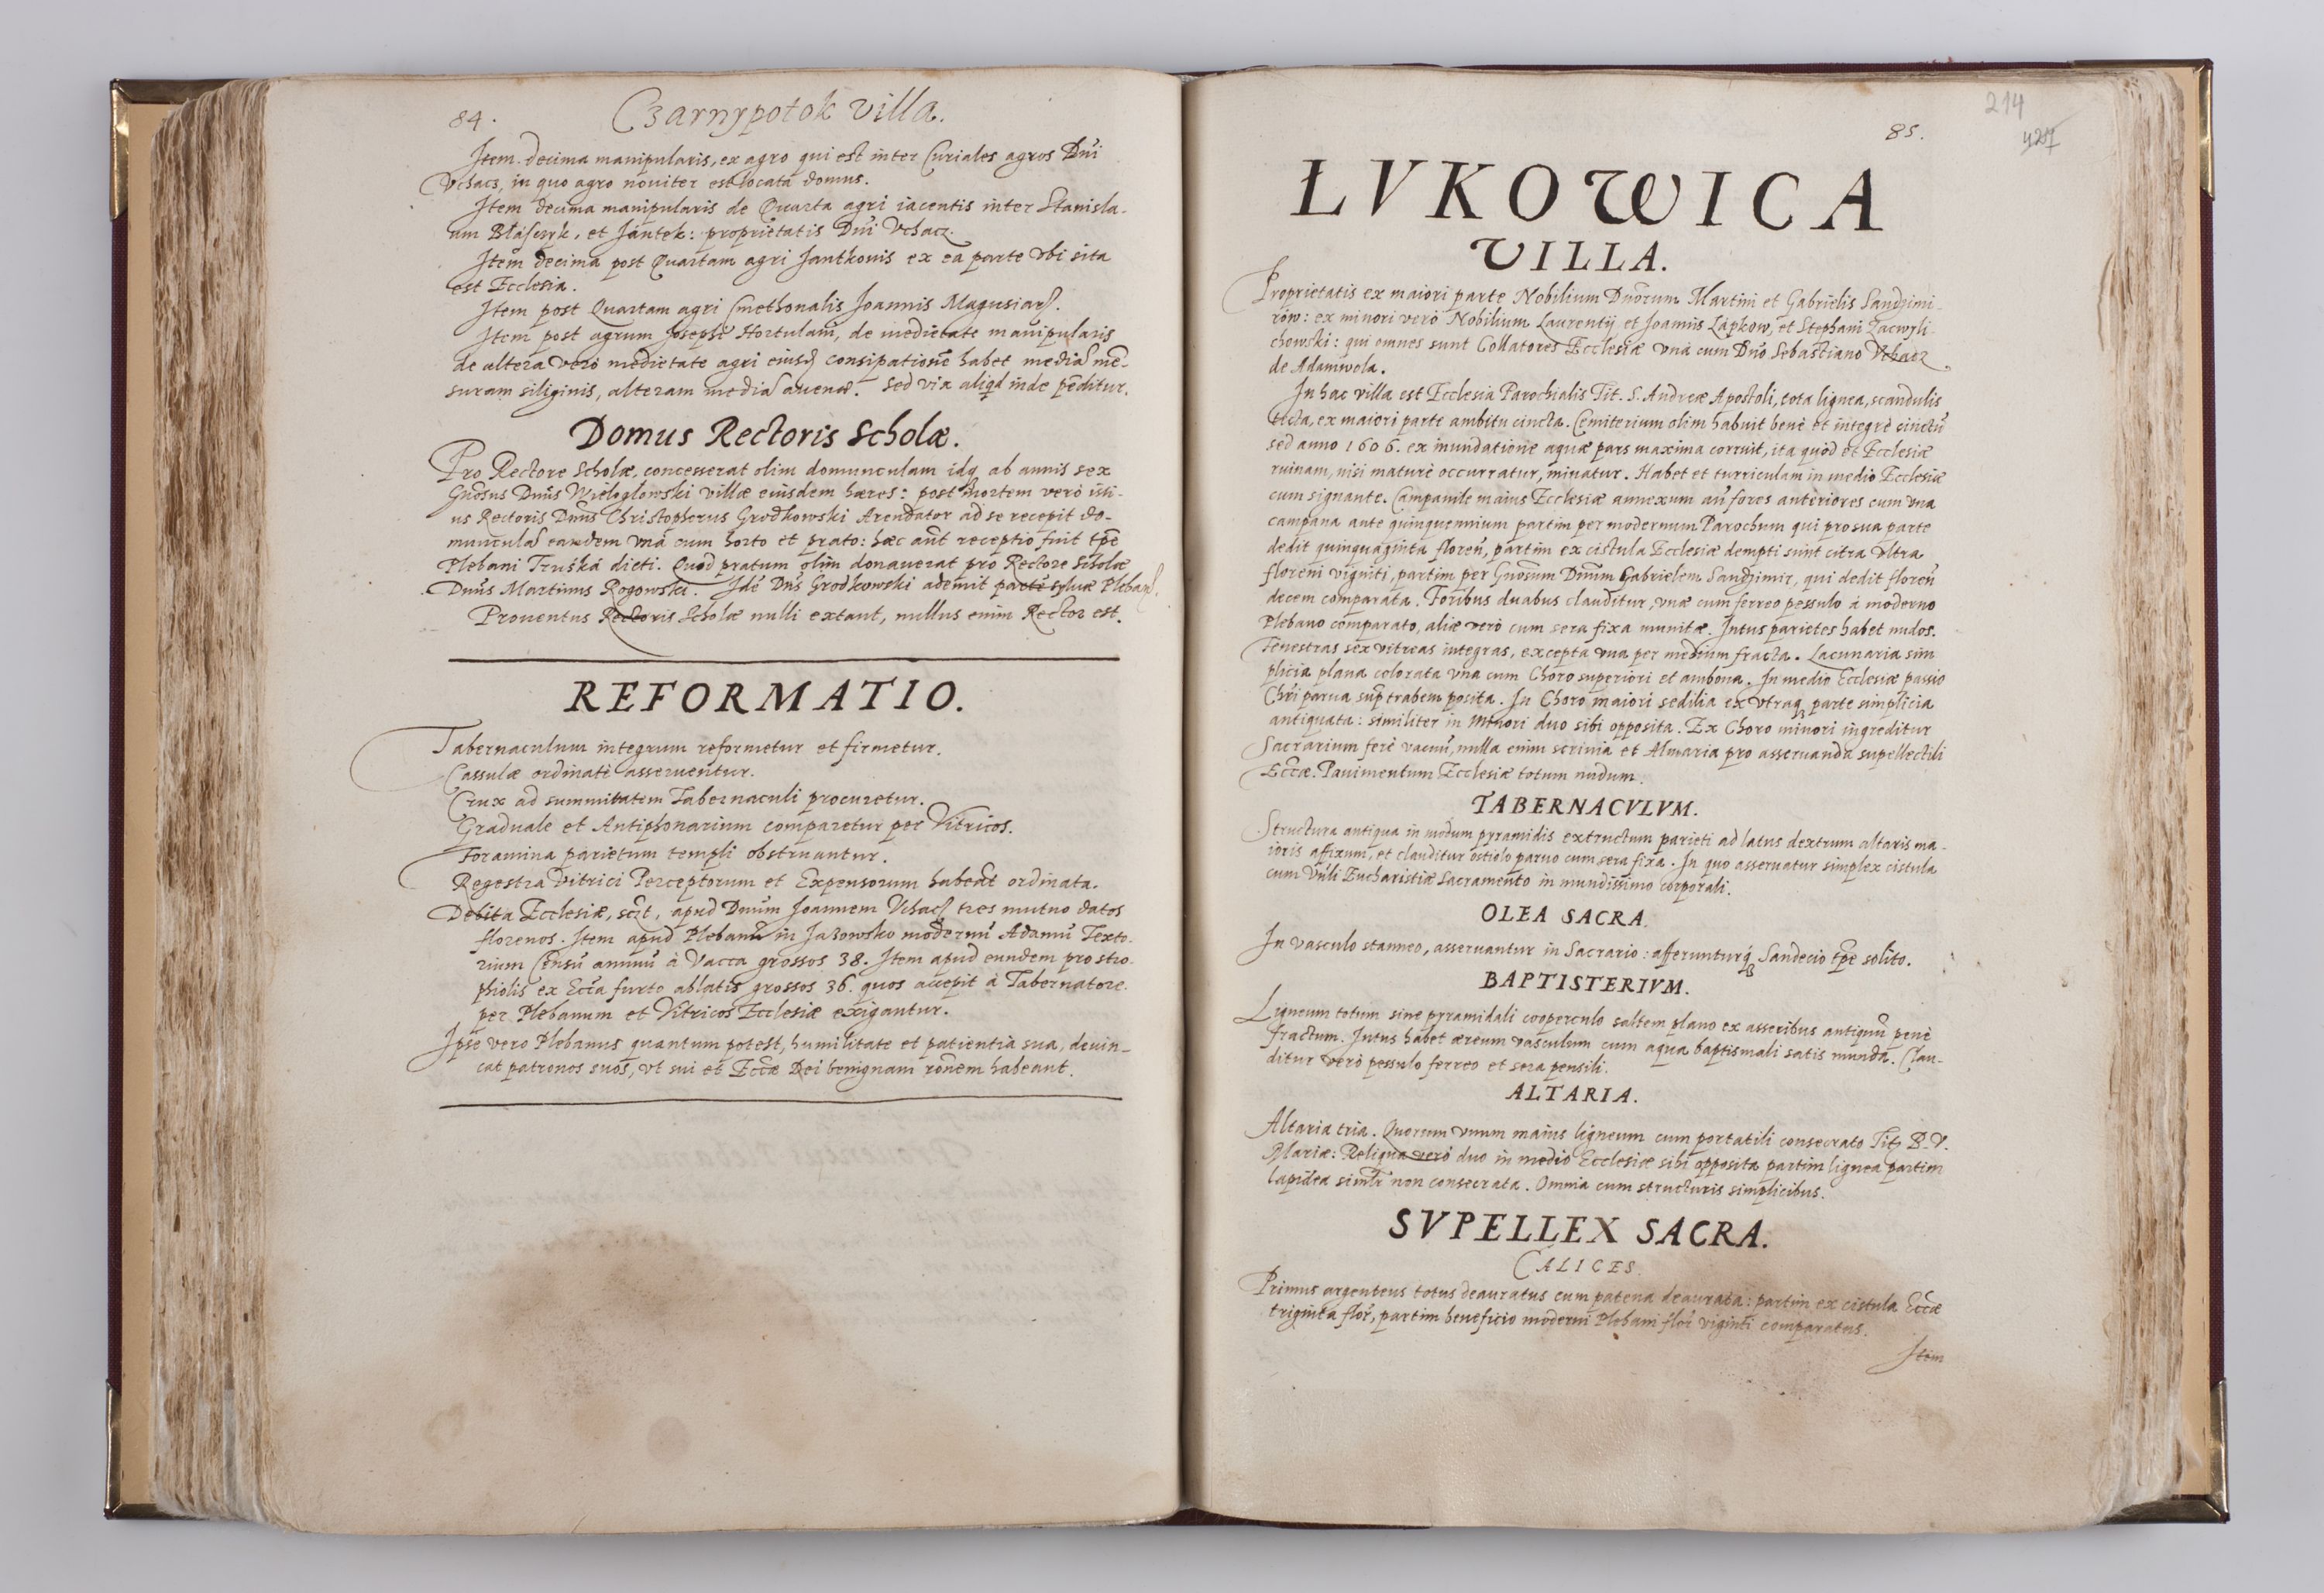 84.
Czarnypotok villa.
Item decima manipularis, ex agro qui est inter Curiales agros Dñi
Vchacz, in quo agro nouiter est locata domus.
Item decima manipularis de Quarta agri iacentis inter Stanisla-
um Błaszczyk, et Jantek: proprietatis Dñi Vchacz.
Item decima post Quartam agri Jantkonis ex ea parte vbi sita
est Ecclesia.
Item post Quartam agri Cmethonalis Joannis
Item post agrum Josephi Hortulani, de medietate manipularis
de altera verò medietate agri eiusd consipatione habet media me-
suram siliginis, alteram media auenæ. sed vix aliqd inde peditur.
Domus Rectoris Scholæ.
Pro Rectore Scholæ concesserat olim domunculam idq ab annis sex
Gnosus Dnus Wielogłowski villæ eiusdem hæres: post mortem verò illi-
us Rectoris Dnus Christopherus Grodkowski Arendator ad se recepit do-
muncula eandem vnà cum horto et prato: hæc aut receptio fuit tpe
Plebani Truska dicti. Quod pratum olim donauerat pro Rectore Scholæ
Dnus Martinus Rogowski. Ide Dns Grodkowski ademit parte syluæ
Prouentus Rectoris Scholæ nulli extant, nullus enim Rector est.
REFORMATIO.
Tabernaculum integrum reformetur et firmetur.
Cassulæ ordinatè asseruentur.
Crux ad summitatem Tabernaculi procuretur.
Graduale et Antiphonarium comparetur per Vitricos.
Foramina parietum templi obstruantur.
Regestra Vitrici Perceptorum et Expensorum habeat ordinata.
Debita Ecclesiæ, sclt, apud Dnum Joannem Vchacz tres mutuo datos
florenos. Item apud Plebanu in Jazowsko modernu Adamu Texto-
rium Censu annuu à Vacca grossos 38. Item apud eundem pro stro-
phiolis ex Ecca furto ablatis grossos 36. quos accepit à Tabernatore.
per Plebanum et Vitricos Ecclesiæ exigantur.
Ipse vero Plebanus quantum potest, humilitate et patientia sua, deuin-
cat patronos suos, vt sui et Eccæ Dei benignam ronem habeant.
214
85.
ŁVKOWICA
VILLA.
Proprietatis ex maiori parte Nobilium Dnorum Martini et Gabrielis Sandzimi-
row: ex minori verò Nobilium Laurentij et Joannis Łapkow, et Stephani Zacwyli-
chowski: qui omnes sunt Collatores Ecclesiæ vnà cum Dno Sebastiano Vchacz
de Adamwola.
In hac villa est Ecclesia Parochialis Tit. S. Andreæ Apostoli, tota lignea, scandulis
tecta, ex maiori parte ambitu cincta. Cemiterium olim habuit benè et integrè cinctu
sed anno 1606. ex inundatione aquæ pars maxima corruit, ita quòd et Ecclesiæ
ruinam, nisi maturè occurratur, minatur. Habet et turriculam in medio Ecclesiæ
cum signante. Campanile maius Ecclesiæ annexum an fores anteriores cum vna
campana ante quinquennium partim per modernum Parochum qui pro sua parte
dedit quinquaginta floren, partim ex cistula Ecclesiæ dempti sunt citra vltra
floreni viginti, partim per Gnosum Dnum Gabrielem Sandzimir, qui dedit floren
decem comparata. Foribus duabus clauditur, vnæ cum ferreo pessulo à moderno
Plebano comparato, aliæ verò cum sera fixa munitæ. Intus parietes habet nudos.
Fenestras sex vitreas integras, excepta vna per medium fracta. Lacunaria sim
plicia plana colorata vna cum Choro superiori et ambona. In medio Ecclesiæ passio
Chri parua sup trabem posita. In Choro maiori sedilia ex vtraq parte simplicia
antiquata: similiter in Minori duo sibi opposita. Ex Choro minori ingreditur
Sacrarium ferè vacuu, nulla enim scrinia et Almaria pro asseruanda supellectili
Eccæ. Pauimentum Ecclesiæ totum nudum.
TABERNACVLVM.
Structura antiqua in modum pyramidis extructum parieti ad latus dextrum altaris ma-
ioris affixum, et clauditur ostiolo paruo cum sera fixa. In quo asseruatur simplex cistula
cum Vnli Eucharistiæ Sacramento in mundissimo corporali.
OLEA SACRA.
In vasculo stanneo, asseruantur in Sacrario: afferunturq Sandecio tpe solito.
BAPTISTERIVM.
Ligneum totum sine pyramidali cooperculo saltem plano ex asseribus antiquu penè
fractum. Intus habet æreum vasculum cum aqua baptismali satis munda. Clau-
ditur verò pessulo ferreo et sera pensili.
ALTARIA.
Altaria tria. Quorum vnum maius ligneum cum portatili consecrato Tit. B. V.
Mariæ: Reliqua verò duo in medio Ecclesiæ sibi opposita partim lignea partim
lapidea simlr non consecrata. Omnia cum structuris simplicibus.
SVPELLEX SACRA.
CALICES.
Primus argenteus totus deauratus cum patena deaurata: partim ex cistula Eccæ
triginta flor, partim beneficio moderni Plebani flor viginti comparatus.
Item